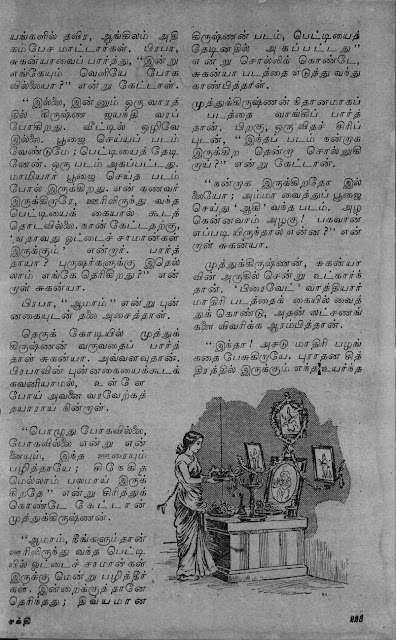 யங்களில் தவிர, ஆங்கிலம் அதி
கம்பேச மாட்டார்கள். பிரபா,
சுகன்யாவைப் பார்த்து, “இன்று
எங்கேயும் வெளியே போக
வில்லையா?” என்று கேட்டாள்.
“இல்லை, இன்னும் ஒரு வாரத்
தில் கிருஷ்ண ஜயந்தி வரப்
போகிறது. வீட்டில் ஒழிவே
இல்லை. பூஜை செய்யப் படம்
வேண்டுமே; பெட்டியைத் தேடி
னேன். ஒரு படம் அகப்பட்டது.
மாமியார் பூஜை செய்த படம்
போல் இருக்கிறது. என் கணவர்
இருக்கிறாரே, ஊரிலிருந்து வந்த
பெட்டியைக் கையால் கூடத்
தொடவில்லை. நான் கேட்டதற்கு,
‘ஏதாவது ஓட்டைச் சாமான்கள்
இருக்கும்’ என்றார். பார்த்
தாயா? புருஷர்களுக்கு இதெல்
லாம் எங்கே தெரிகிறது?” என்
றாள் சுகன்யா.
பிரபா, “ஆமாம்” என்று புன்
னகையுடன் தலை அசைத்தாள்.
தெருக் கோடியில் முத்துக்
கிருஷ்ணன் வருவதைப் பார்த்
தாள் சுகன்யா. அவ்வளவுதான்.
பிரபாவின் புன்னகையைக்கூடக்
கவனியாமல், உள்ளே
போய் அவனை வரவேற்கத்
தயாராய் நின்றாள்.
“பொழுது போகவில்லை,
போகவில்லை என்று என்
னையும், இந்த ஊரையும்
பழித்தாயே; சிநேகித
மெல்லாம் பலமாய் இருக்
கிறதே” என்று சிரித்துக்
கொண்டே கேட்டான்
முத்துக்கிருஷ்ணன்.
“ஆமாம், நீங்களும்தான்
ஊரிலிருந்து வந்த பெட்டி
யில் ஓட்டைச் சாமான்கள்
இருக்கு மென்று பழித்தீர்
கள். இன்றைக்குத் தானே
தெரிந்தது; திவ்யமான
கிருஷ்ணன் படம், பெட்டியைத்
தேடினதில் அகப்பட்டது”
என்று சொல்லிக் கொண்டே,
சுகன்யா படத்தை எடுத்து வந்து
காண்பித்தாள்.
முத்துக்கிருஷ்ணன் நிதானமாகப்
படத்தை வாங்கிப் பார்த்
தான். பிறகு, ஒரு விதச் சிரிப்
புடன், “இந்தப் படம் நன்றாக
இருக்கிற தென்றா சொல்லுகி
றாய்?” என்று கேட்டான்.
“நன்றாக இருக்கிறதோ இல்
லையோ; அம்மா வைத்துப் பூஜை
செய்து ‘ஆகி’ வந்த படம். அழ
கென்னவாம் அழகு! பகவான்
எப்படி யிருந்தால் என்ன?” என்
றாள் சுகன்யா.
முத்துக்கிருஷ்ணன், சுகன்யா
வின் அருகில் சென்று உட்கார்ந்
தான். ‘பிரைவேட்’ வாத்தியார்
மாதிரி படத்தைக் கையில் வைத்
துக் கொண்டு, அதன் லட்சணங்
களை விவரிக்க ஆரம்பித்தான்.
“இந்தா! அசடு மாதிரி பழங்
கதை பேசுகிறாயே. புராதன சித்
திரத்தில் இருக்கும் எந்த உயர்ந்த
சக்தி